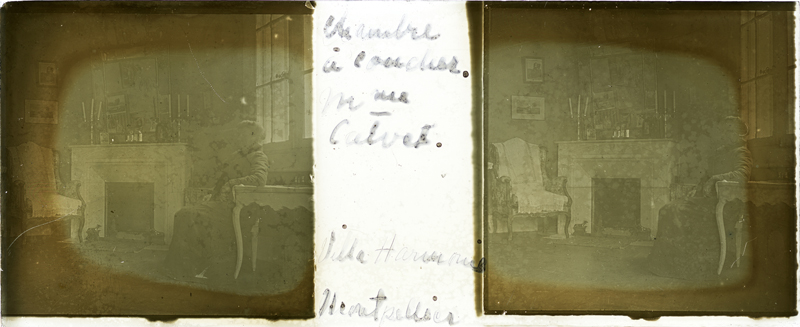 Chambre
à Coucher.
Mme
Calvet.
Villa Harmonie
Montpellier